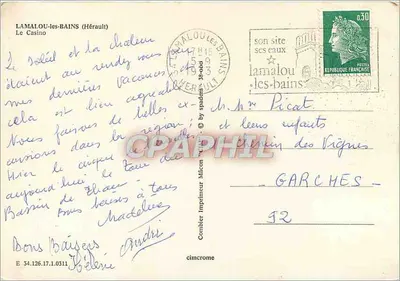 LAMALOU-les-BAINS (Hérault)
Le Casino
Le soleil et la chaleur
étaient au rendez-vous
mes dernières vacances
cela est bien agréable
Nous faisons de belles ex-
cursions dans la région ;
Hier le cirque de
aujourd'hui le tour du
Bassin de Thau
Bons baisers à tous
Madeleine
André
Bons Baisers
Hélène
E 34.126.17.1.0311
Combier Imprimeur Macon
© by spadem
cimcrome
LAMALOU-les-BAINS
HERAULT
son site
ses eaux
lamalou
les-bains
0,30
REPUBLIQUE FRANÇAISE
POSTES
M. Mme Picat
et leurs enfants
chemin des Vignes
GARCHES
92
CPAPHIL